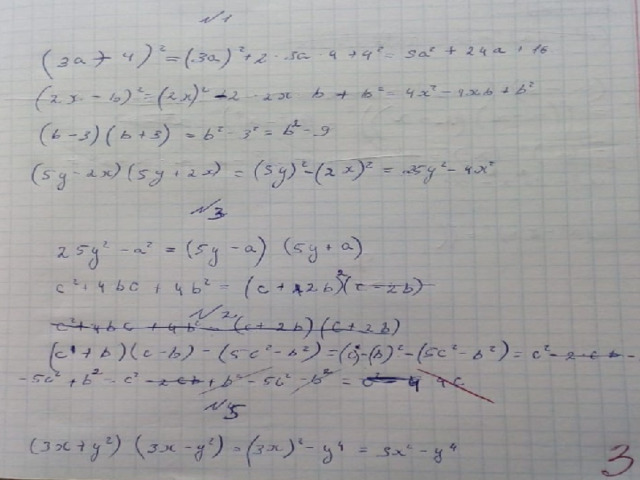 №1
(3a + 4)² = (3a)² + 2 · 3a · 4 + 4² = 9a² + 24a + 16
(2x - b)² = (2x)² - 2 · 2x · b + b² = 4x² - 4xb + b²
(b - 3)(b + 3) = b² - 3² = b² - 9
(5y - 2x)(5y + 2x) = (5y)² - (2x)² = 25y² - 4x²
№3
25y² - a² = (5y - a)(5y + a)
c² + 4bc + 4b² = (c + 2b)² (c - 2b)
№2
c² + 4bc + 4b² = (c + 2b)(c + 2b)
(c + b)(c - b) - (5c² - b²) = (c)² - (b)² - (5c² - b²) = c² - 2cb -
- 5c² + b² = c² - 2cb + b² - 5c² - b² = c² - 4
№5
(3x + y²)(3x - y²) = (3x)² - y⁴ = 9x² - y⁴
3